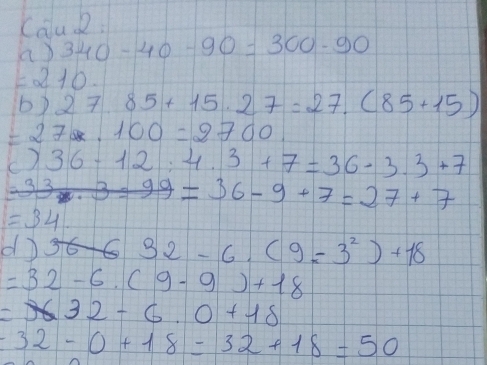 Câu 2:
a) 340 - 40 - 90 = 300 - 90
= 210.
b) 27 85 + 15 . 27 = 27. (85 + 15)
= 27 . 100 = 2700.
c) 36 - 12 : 4 . 3 + 7 = 36 - 3 . 3 + 7
= 33 . 3 = 99 = 36 - 9 + 7 = 27 + 7
= 34.
d) 36 - 6 32 - 6 . (9 - 3²) + 18
= 32 - 6 . (9 - 9) + 18
= 32 - 6 . 0 + 18
= 32 - 0 + 18 = 32 + 18 = 50